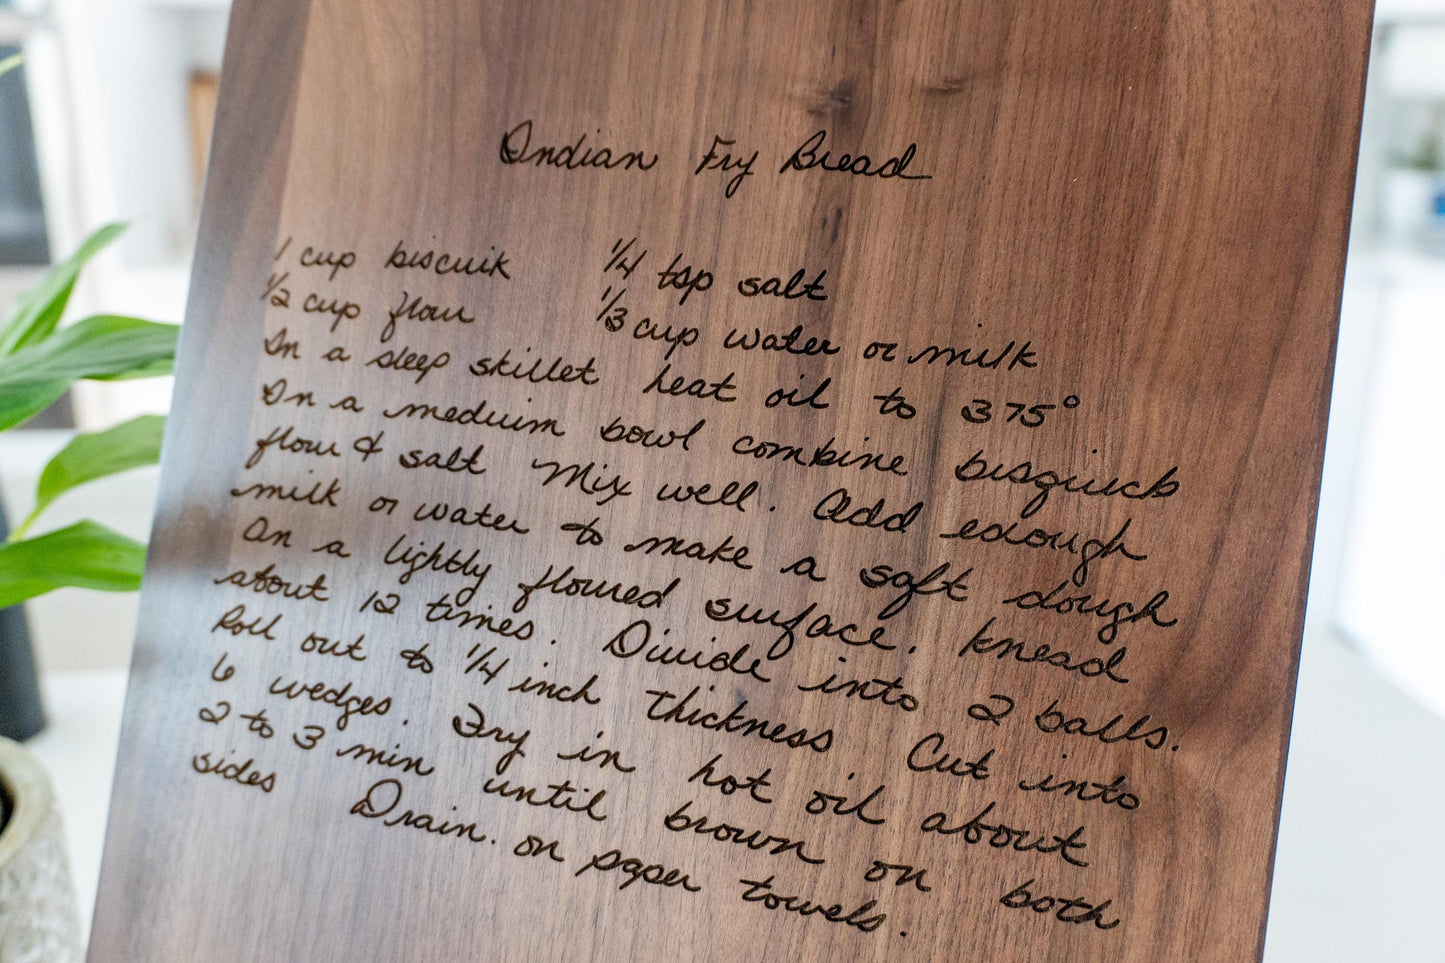 Indian Fry Bread
1 cup biscuik 1/4 tsp salt
1/2 cup flour 1/3 cup water or milk
In a deep skillet heat oil to 375°
In a medium bowl combine bisquick
flour & salt Mix well. Add enough
milk or water to make a soft dough
On a lightly floured surface. Knead
about 12 times. Divide into 2 balls.
Roll out to 1/4 inch thickness Cut into
6 wedges. Fry in hot oil about
2 to 3 min until brown on both
sides Drain. on paper towels.